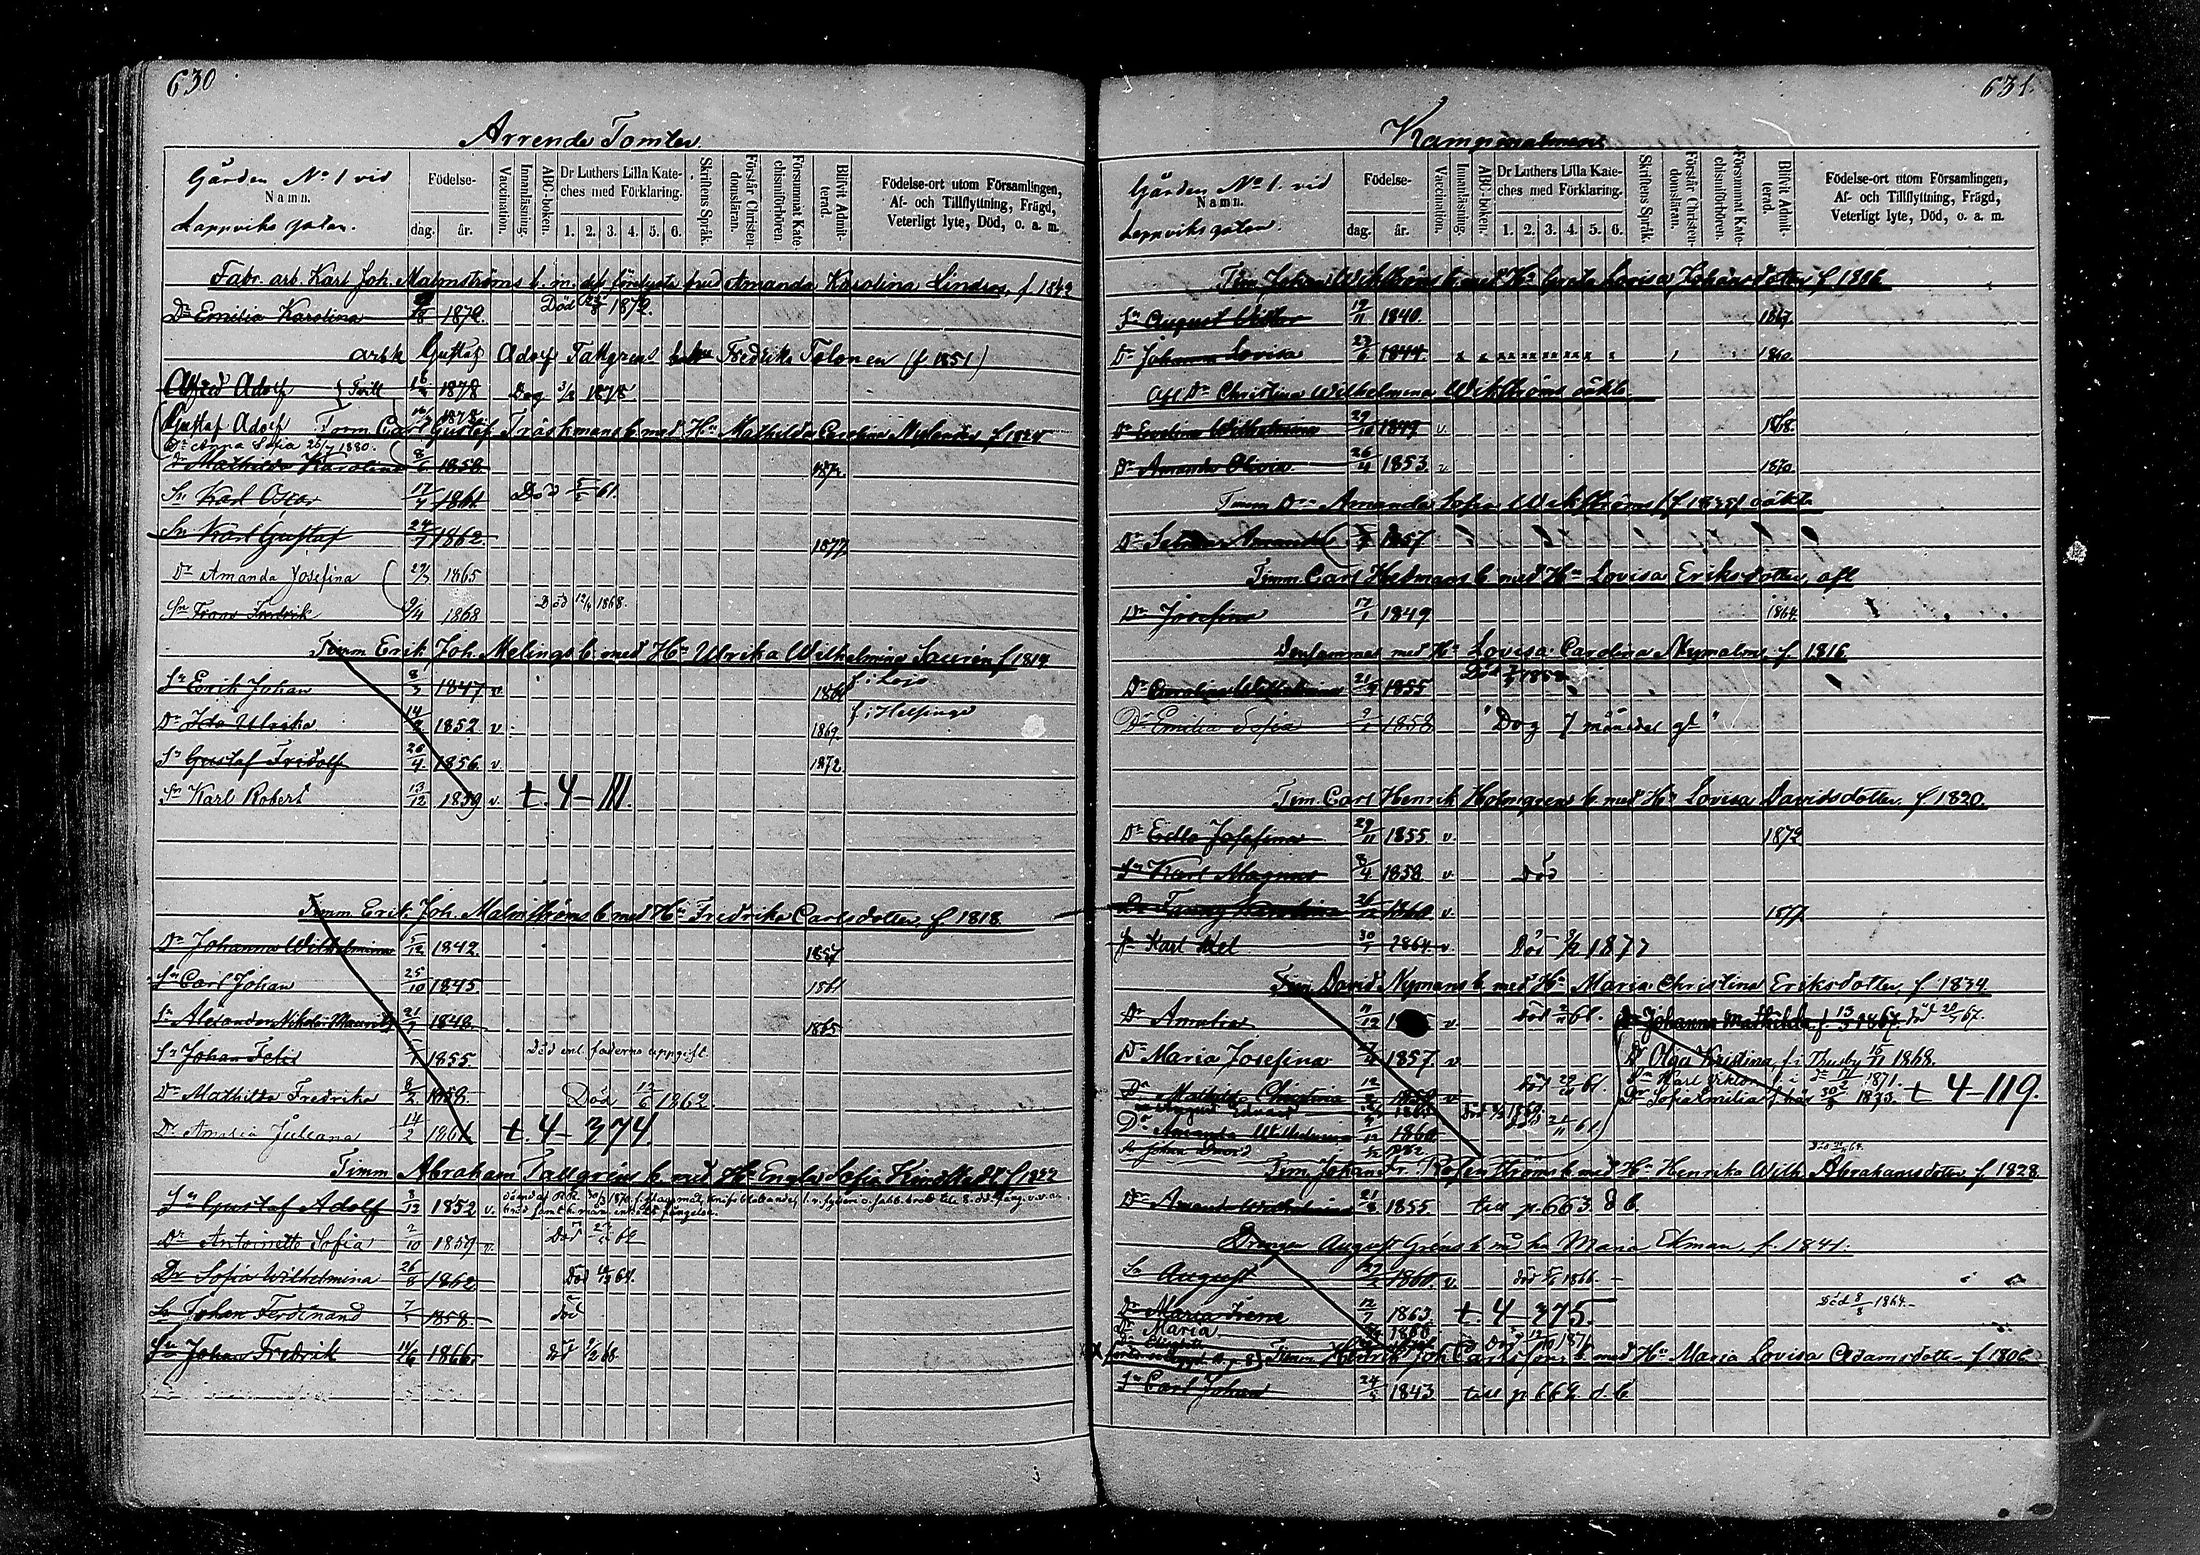 630
Arrende Tomter.
Gården No 1 vid
Namn.
Lappviks gatan.
Födelse-
dag. år.
Vaccination.
Innanläsning.
ABC-boken.
Dr Luthers Lilla Kate-
ches med Förklaring.
1. 2. 3. 4. 5. 6.
Skriftens Språk.
Förstår Christen-
domsläran.
Försummat Kate-
chismiförhören.
Blifvit Admit-
terad.
Födelse-ort utom Församlingen,
Af- och Tillflyttning, Frägd,
Veterligt lyte, Död, o. a. m.
Fabr. arb. Karl Joh. Malmströms b. m. det förelupte hu Amanda Karolina Lindros, f. 1842
Dr Emilia Karolina 1872. Död 1872.
arb.k Gustaf Adolf Tallgrens Fredrika Tolonen (f 1851)
Alfred Adolf } Tvill 1878 Dog 1878
Gustaf Adolf 1878
Timm Carl Gustaf Träskmans b. med Hu Mathilda Carolina Mylander f 1824
Dr Anna Sofia 1880.
Dr Mathilda Karolina 8/6 1858
Sn Karl Oscar 17/4 1861 Död 61.
Sn Karl Gustaf 24/7 1862 1877
Dr Amanda Josefina 29/7 1865
Sn Frans Fredrik 9/4 1868 Död 1868.
Timm Erik Joh. Melings b. med Hu Ulrika Wilhelmina Saurén f 1819
Sn Erik Johan 1847 v f. i Lojo
Dr Ida Ulrika 14 1852 v 1869. f. i Helsinge
Sn Gustaf Fridolf 26/4 1856 v 1872
Sn Karl Robert 13/12 1859 v. t. 4 - 111.
Timm Erik Joh. Malmströms b. med Hu Fredrika Carlsdotter, f. 1818
Dr Johanna Wilhelmina 5/12 1842. 1857
Sn Carl Johan 25/10 1845. 1861
Sn Alexander Nikolai Mauritz 21 1848 1865
Sn Johan Felix 1855. Död enl. faderns uppgift.
Dr Mathilda Fredrika 8/2 1858 Död 12/6 1862.
Dr Amalia Juliana 14/2 1861 t. 4 - 374.
Timm Abraham Tallgréns b. med Hu Engla Sofia Kindstedt f 1822
Sn Gustaf Adolf 8/12 1852 v.
Dr Antoinette Sofia 2/10 1859 v. Död
Dr Sofia Wilhelmina 26/8 1862 Död 64.
Sn Johan Ferdinand 1858 död
Sn Johan Fredrik 11/6 1866 död 68
631.
Kampmalmens
Gården No 1. vid
Namn.
Lappviks gatan.
Födelse-
dag. år.
Vaccination.
Innanläsning.
ABC-boken.
Dr Luthers Lilla Kate-
ches med Förklaring.
1. 2. 3. 4. 5. 6.
Skriftens Språk.
Förstår Christen-
domsläran.
Försummat Kate-
chismiförhören.
Blifvit Admit-
terad.
Födelse-ort utom Församlingen,
Af- och Tillflyttning, Frägd,
Veterligt lyte, Död, o. a. m.
Tim. Johan Wikströms b. med Hu Greta Lovisa Johansdotter f 1806
Sn August Viktor 19/11 1840.
Dr Johanna Lovisa 27/6 1844. 1860
Afl. Dr Christina Wilhelmina Wikströms oäkta
Dr Evelina Wilhelmina 29/10 1849 v 1868.
Dr Amanda Olivia 26/4 1853 v 1870
Timm Dr Amanda Sofia Wikströms (f 1835) oäkta
Dr Selma Amanda 1857
Timm Carl Hedmans b. med Hu Lovisa Eriksdotter, afl
Dr Josefina 17/1 1849 1864
Densammes med Hu Lovisa Carolina Nymalm f 1816
Dr Carolina Wilhelmina 21 1855 Död 1858
Dr Emilia Sofia 1858 "Dog 7 månader gl"
Tim. Carl Henrik Holmgrens b. med Hu Lovisa Davidsdotter, f 1820
Dr Edla Josefina 29/11 1855 v 1872
Sn Karl Magnus 8/4 1858 v Död
Dr Fanny Karolina 26 v 1877
Sn Karl Axel 30 1864 v. Död 1877
Tim. David Nymans b. med Hu Maria Christina Eriksdotter, f. 1834
Dr Amalia 11/12 v död 61.
Dr Johanna Mathilda f. 13 1867. död 67.
Dr Maria Josefina 1857. v
Dr Olga Kristina, f. i Thusby 15/11 1868.
Dr Mathilda Christina 12 v död 61.
Sn Karl Viktor 1871.
Sn August Edvard död 1862.
Dr Sofia Emilia f. här 30/8 1873. t 4 - 119.
Dr Amanda Wilhelmina 1860
Sn Johan David 1862
Tim. Johan Fr. Rosenströms b. med Hu Henrika Wilh. Abrahamsdotter f 1828
Dr Amanda Wilhelmina 21/8 1855. till p. 663. d. b.
Drängen August Gréns b. med hu Maria Ekman, f. 1841.
Sn August 1860. v död 1866.
Dr Maria Irene 12/7 1863 t. 4 375. Död 8/8 1864.
Dr Maria 1868
Timm Henrik Joh Carlssons b. med Hu Maria Lovisa Adamsdotter f 1806
Sn Carl Johan 24 1843 till p 662 d. b.